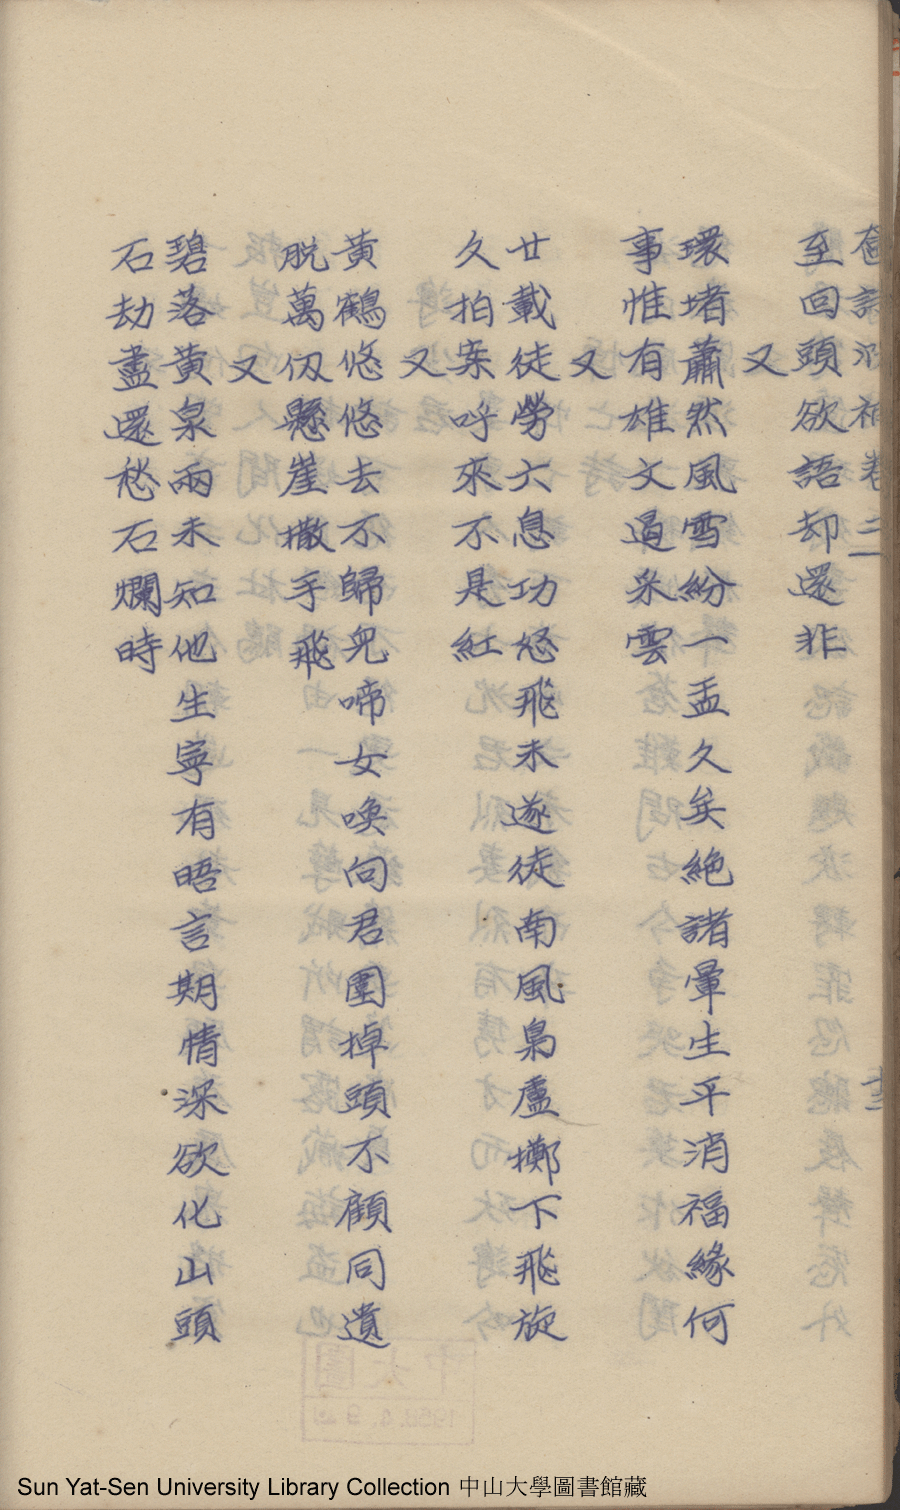 至回頭欲語却還非
又
環堵蕭然風雪紛一盂久矣絶諸暈生平消福緣何
事惟有雄文遏采雲
又
廿載徒勞六息功怒飛未遂徒南風梟盧擲下飛旋
久拍案呼來不是紅
又
黃鶴悠悠去不歸兒啼女喚向君圍掉頭不顧同遺
脱萬仭懸崖撒手飛
又
碧落黃泉兩未知他生寧有晤言期情深欲化山頭
石劫盡還愁石爛時
Sun Yat-Sen University Library Collection 中山大學圖書館藏